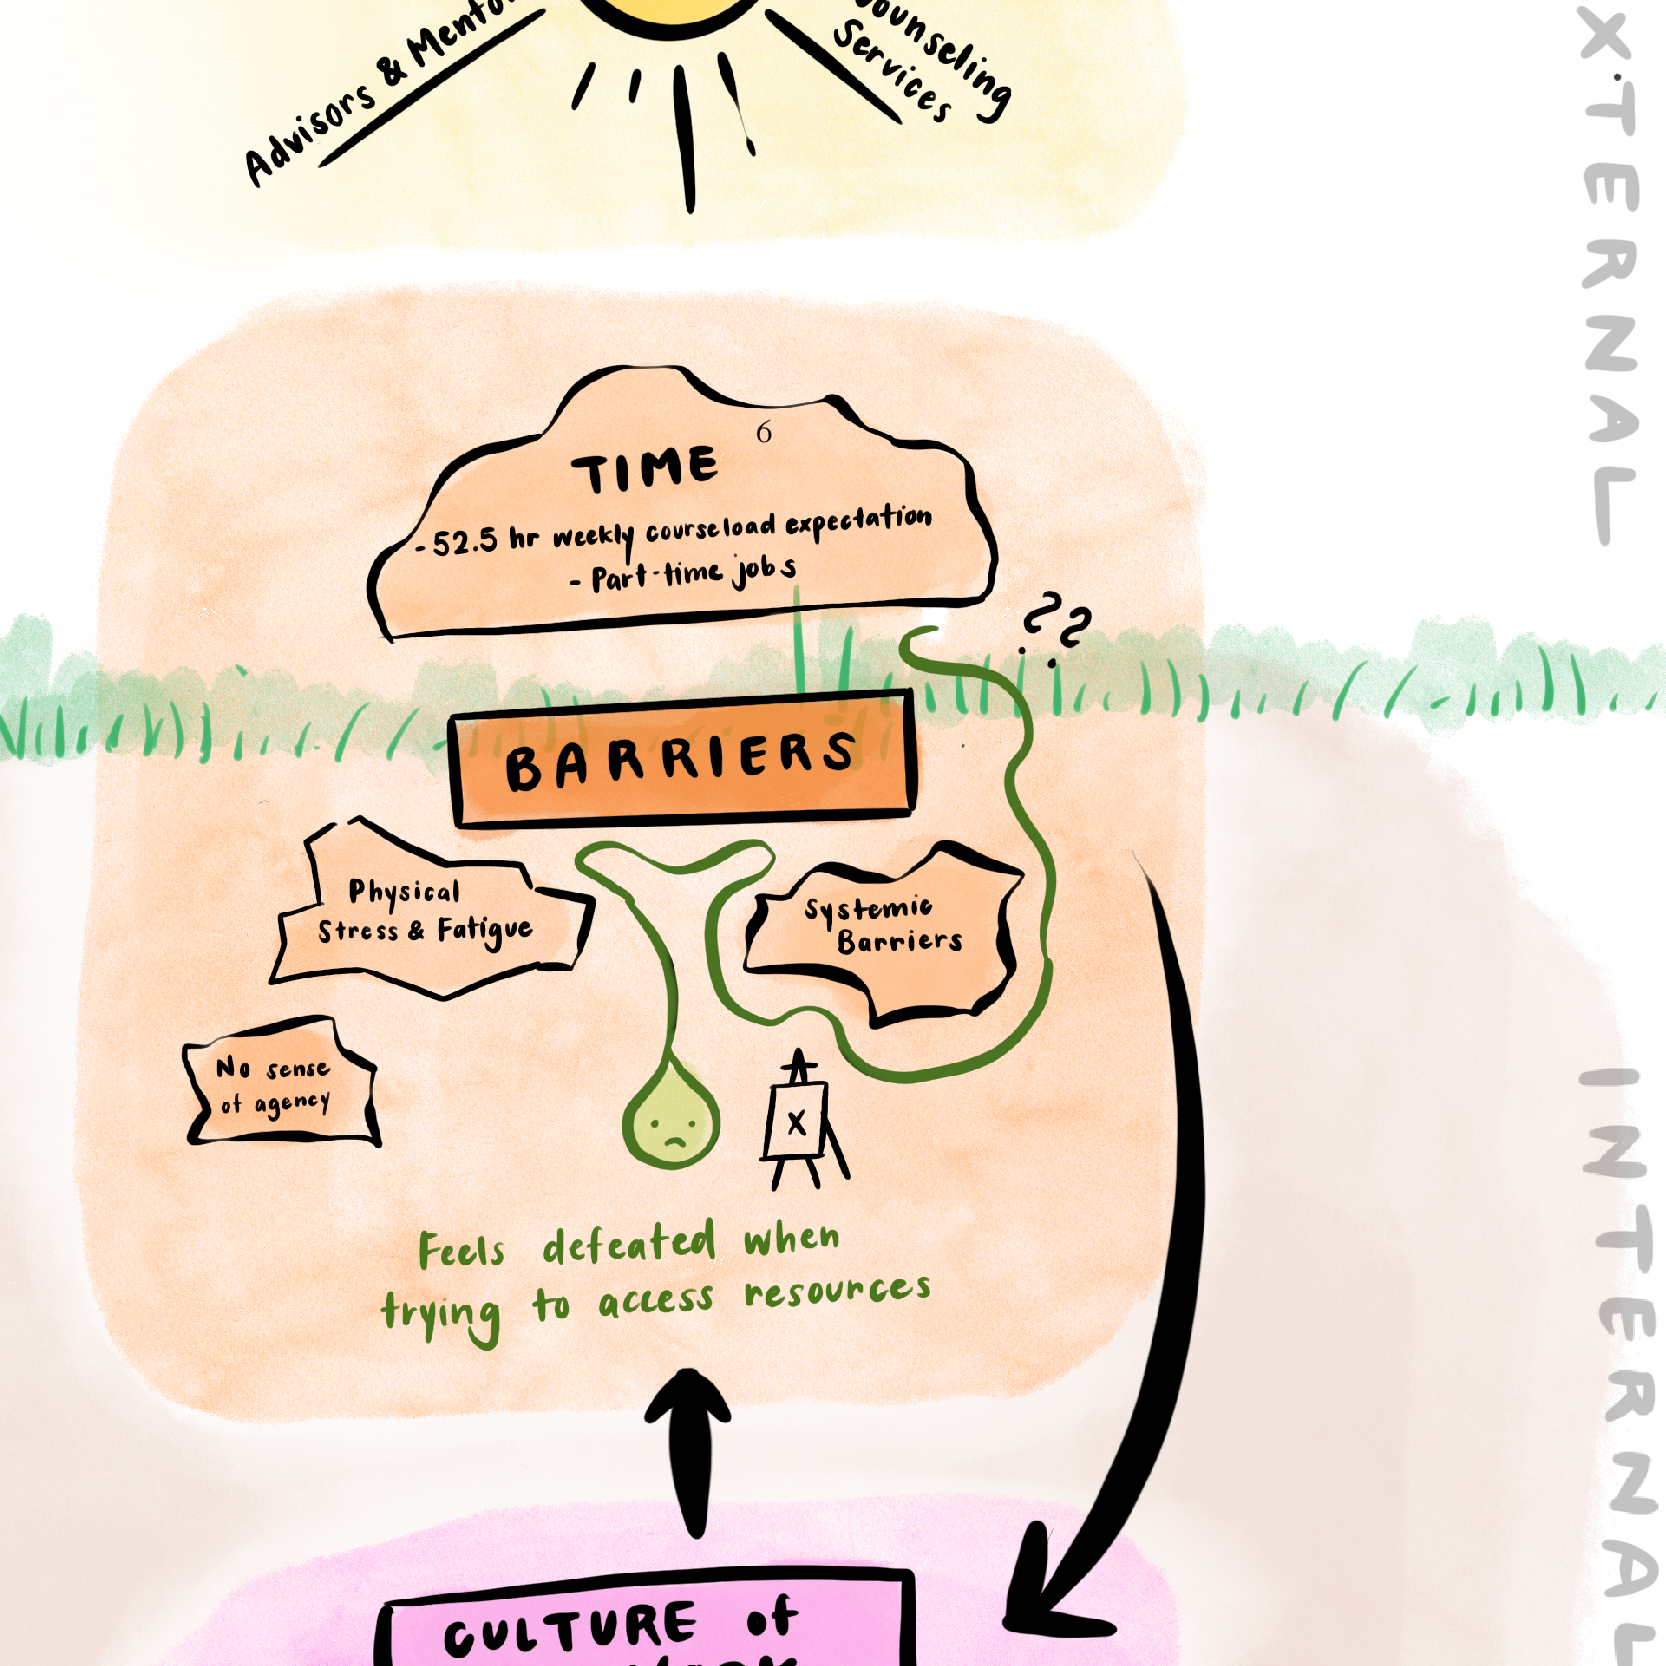 Advisors & Mento
ounseling
Services
XTERNAL
6
TIME
- 52.5 hr weekly courseload expectation
- Part-time jobs
??
BARRIERS
Physical
Stress & Fatigue
Systemic
Barriers
No sense
of agency
X
Feels defeated when
trying to access resources
INTERNAL
CULTURE of